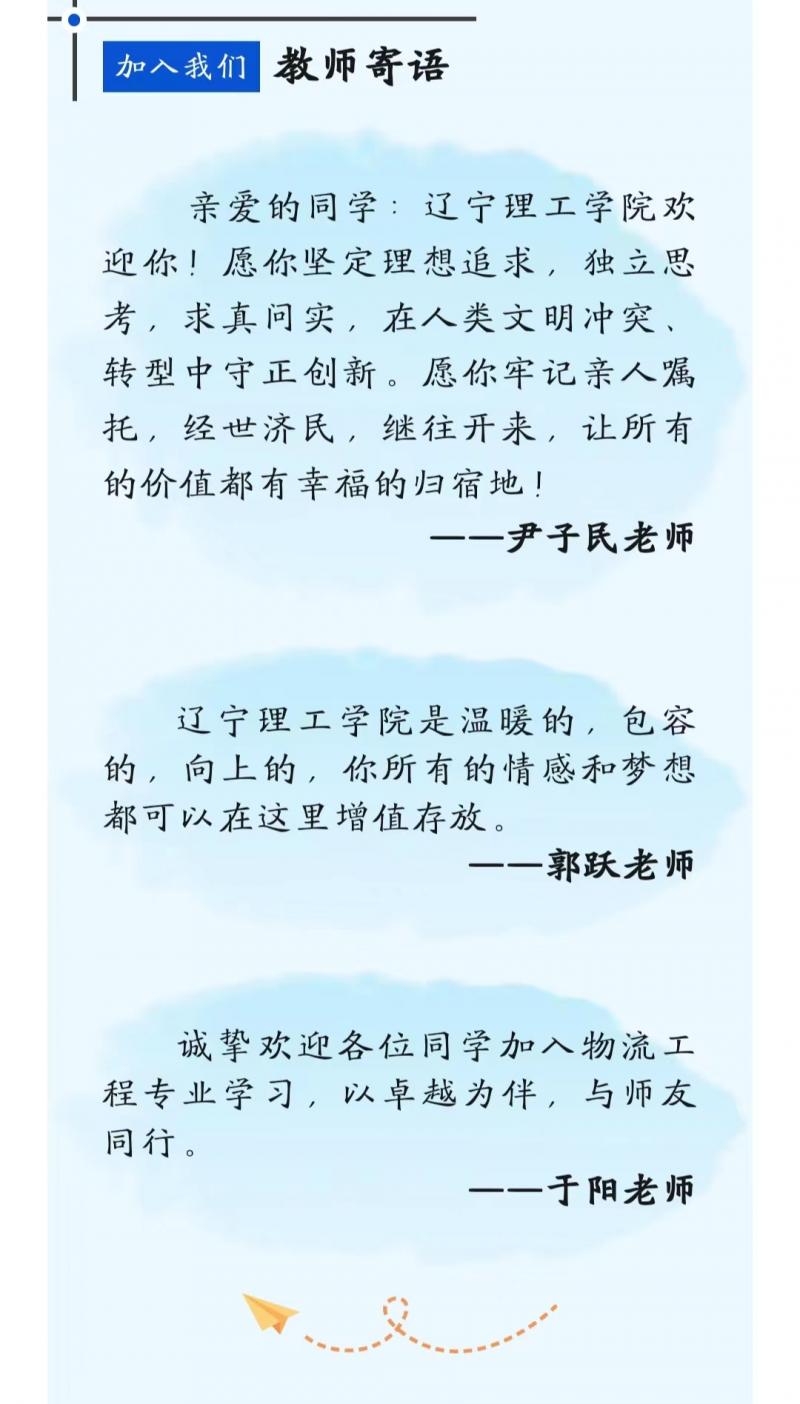 加入我们 教师寄语
亲爱的同学：辽宁理工学院欢
迎你！愿你坚定理想追求，独立思
考，求真问实，在人类文明冲突、
转型中守正创新。愿你牢记亲人嘱
托，经世济民，继往开来，让所有
的价值都有幸福的归宿地！
——尹子民老师
辽宁理工学院是温暖的，包容
的，向上的，你所有的情感和梦想
都可以在这里增值存放。
——郭跃老师
诚挚欢迎各位同学加入物流工
程专业学习，以卓越为伴，与师友
同行。
——于阳老师